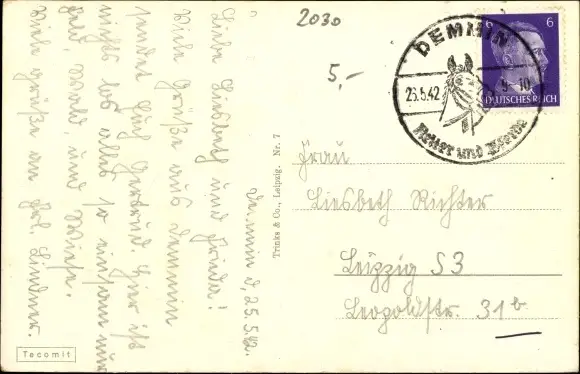 2030
5,-
DEMMIN
25.5.42
9-10
Reiter und Pferde
6
DEUTSCHES REICH
Demmin d, 25.5.42.
Liebe Liesbeth und Frieda!
Viele Grüße aus Demmin
sendet Euch Gertrud. Hier ist
nichts los alles so einsam nur
Feld, Wald, und Wiese.
Viele Grüße an Frl. Lindner.
Trinks & Co., Leipzig, Nr. 7
Frau
Liesbeth Richter
Leipzig S3
Leopoldstr. 31b
Tecomit